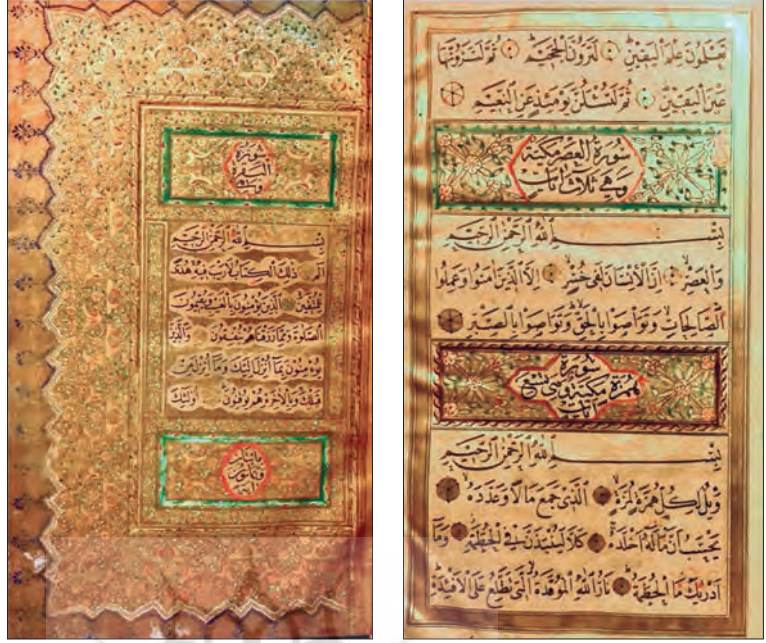 سُورَةُ
البَقَرَة
بِسْمِ اللهِ الرَّحْمٰنِ الرَّحِيمِ
الم ذٰلِكَ الْكِتَابُ لَا رَيْبَ فِيهِ هُدًى
لِلْمُتَّقِينَ الَّذِينَ يُؤْمِنُونَ بِالْغَيْبِ وَيُقِيمُونَ
الصَّلٰوةَ وَمِمَّا رَزَقْنَاهُمْ يُنْفِقُونَ وَالَّذِينَ
يُؤْمِنُونَ بِمَا أُنْزِلَ إِلَيْكَ وَمَا أُنْزِلَ مِنْ
قَبْلِكَ وَبِالْآخِرَةِ هُمْ يُوقِنُونَ أُولٰئِكَ
تَعْلَمُونَ عِلْمَ الْيَقِينِ لَتَرَوُنَّ الْجَحِيمَ ثُمَّ لَتَرَوُنَّهَا
عَيْنَ الْيَقِينِ ثُمَّ لَتُسْئَلُنَّ يَوْمَئِذٍ عَنِ النَّعِيمِ
سُورَةُ الْعَصْرِ مَكِّيَّة
وَهِيَ ثَلَاثُ آيَاتٍ
بِسْمِ اللهِ الرَّحْمٰنِ الرَّحِيمِ
وَالْعَصْرِ إِنَّ الْإِنْسَانَ لَفِي خُسْرٍ إِلَّا الَّذِينَ آمَنُوا وَعَمِلُوا
الصَّالِحَاتِ وَتَوَاصَوْا بِالْحَقِّ وَتَوَاصَوْا بِالصَّبْرِ
سُورَةُ
هُمَزَة مَكِّيَّة وَهِيَ تِسْعُ
آيَات
بِسْمِ اللهِ الرَّحْمٰنِ الرَّحِيمِ
وَيْلٌ لِكُلِّ هُمَزَةٍ لُمَزَةٍ الَّذِي جَمَعَ مَالًا وَعَدَّدَهُ
يَحْسَبُ أَنَّ مَالَهُ أَخْلَدَهُ كَلَّا لَيُنْبَذَنَّ فِي الْحُطَمَةِ وَمَا
أَدْرٰيكَ مَا الْحُطَمَةُ نَارُ اللهِ الْمُوقَدَةُ الَّتِي تَطَّلِعُ عَلَى الْأَفْئِدَةِ